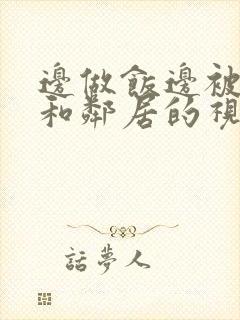 邊做飯邊被
和鄰居的視
話夢人